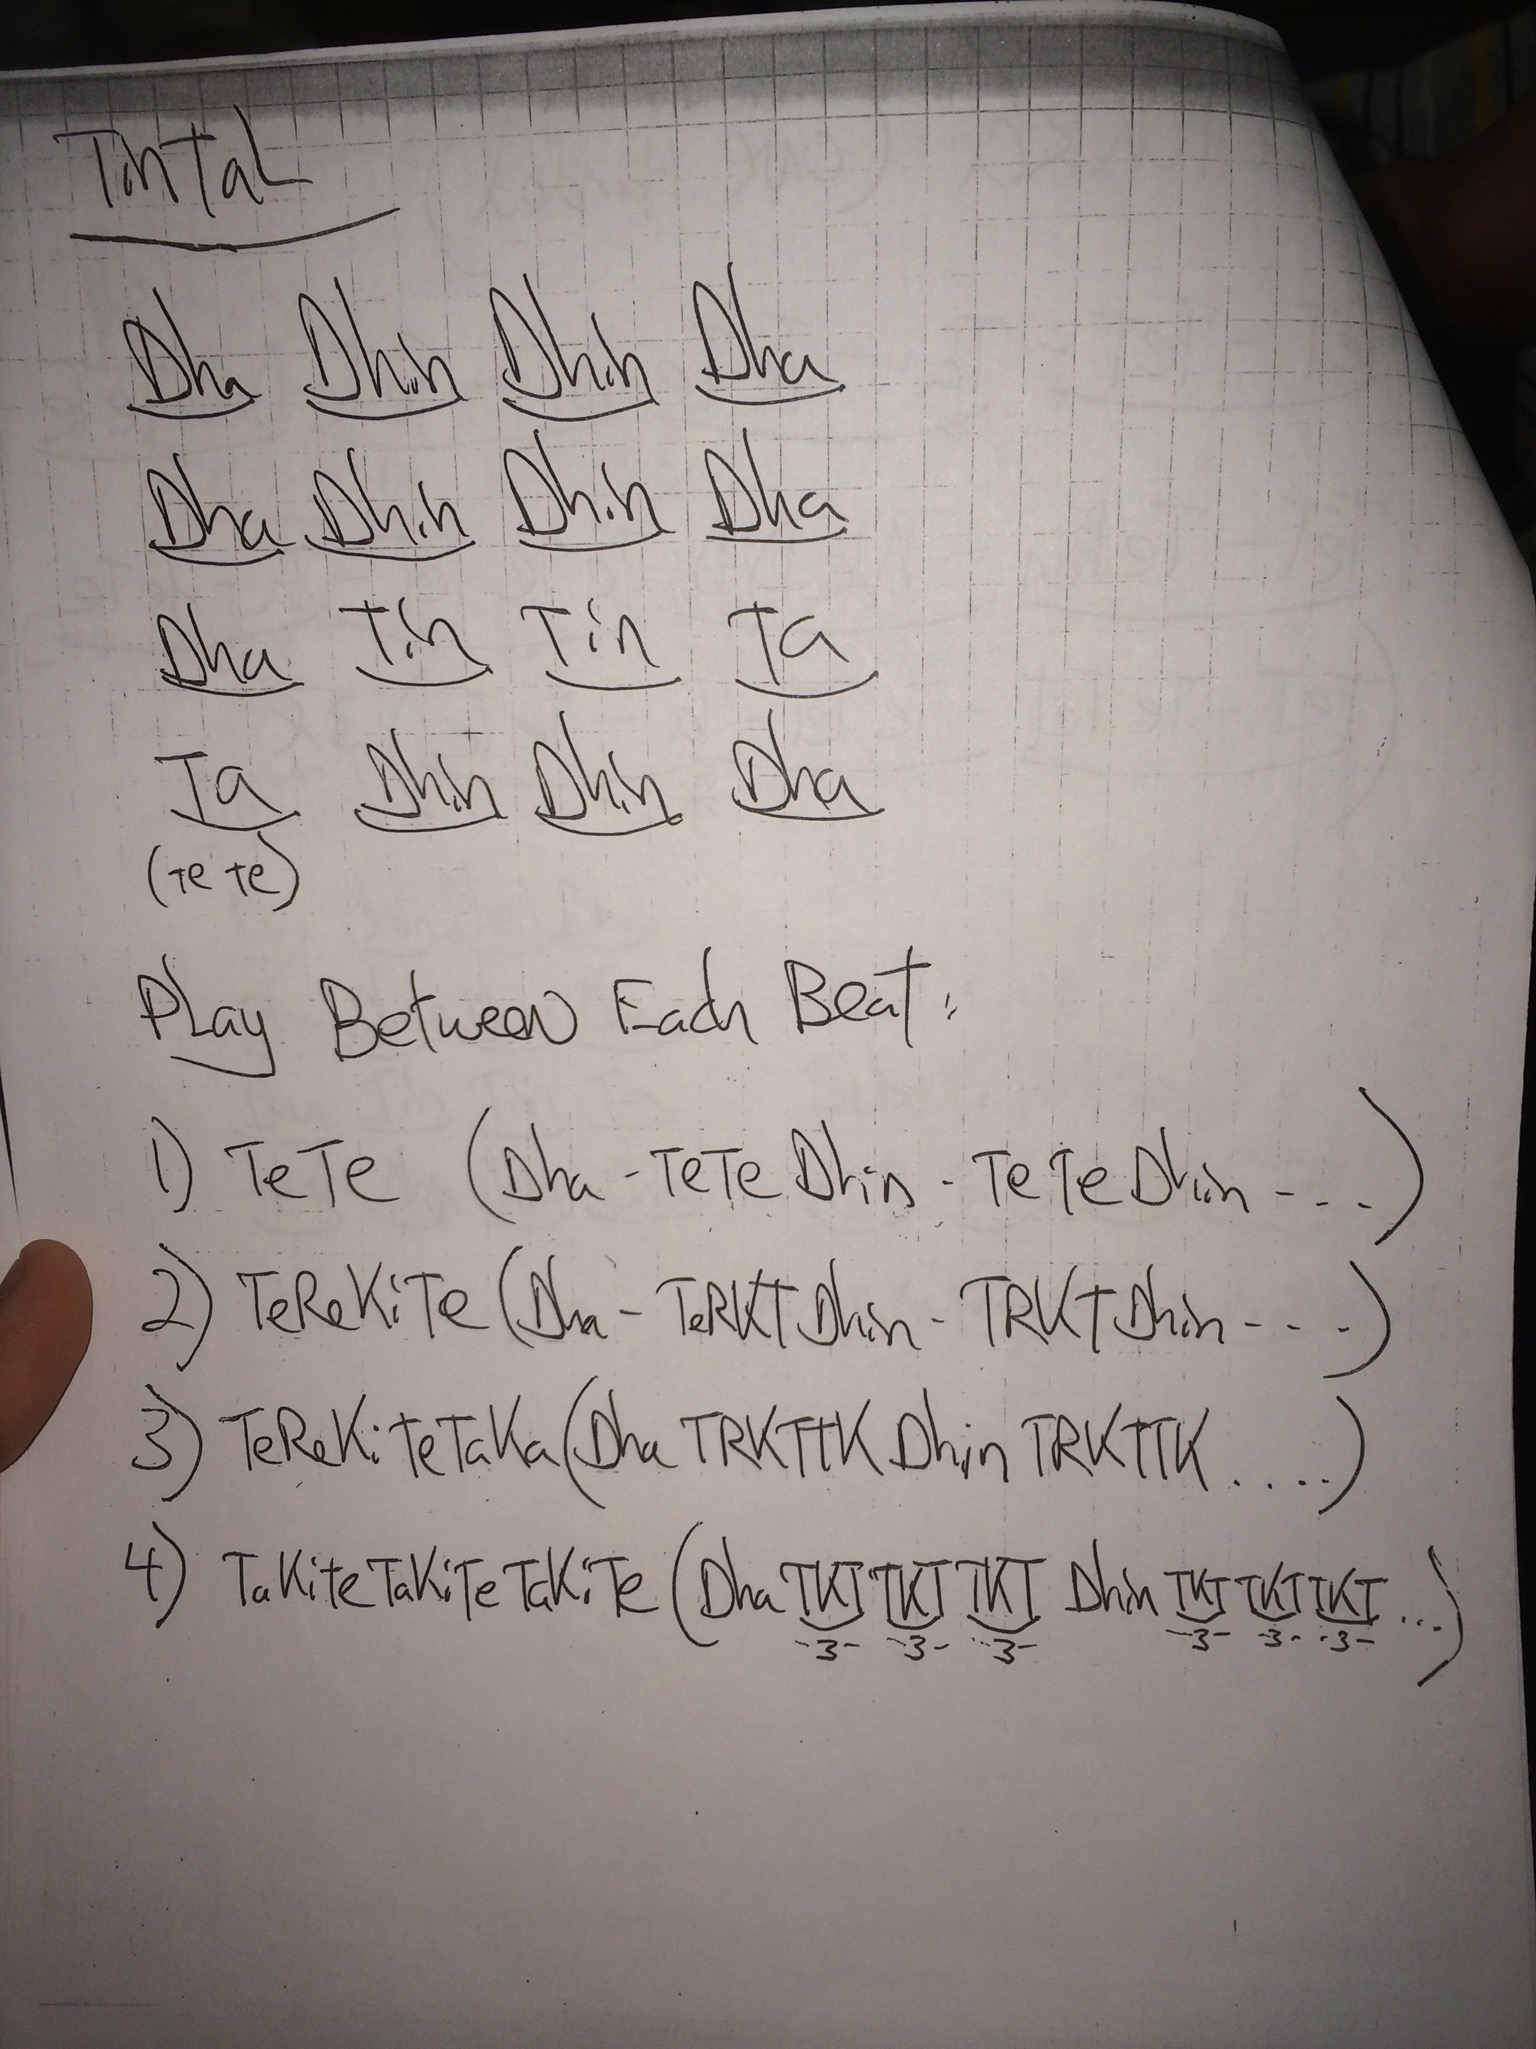 TinTaL
Dha Dhin Dhin Dha
Dha Dhin Dhin Dha
Dha Tin Tin Ta
Ta Dhin Dhin Dha
(Te Te)
PLay Between Each Beat:
1) TeTe (Dha - TeTe Dhin - TeTe Dhin - - . . )
2) TeReKiTe (Dha - TeRKT Dhin - TRKT Dhin - - - . )
3) TeReKiteTaKa (Dha TRKTTK Dhin TRKTTK . . . . )
4) TaKiteTaKiTeTaKiTe (Dha TKT TKT TKT Dhin TKT TKT TKT ... )
-3- -3- -3- -3- -3- -3-